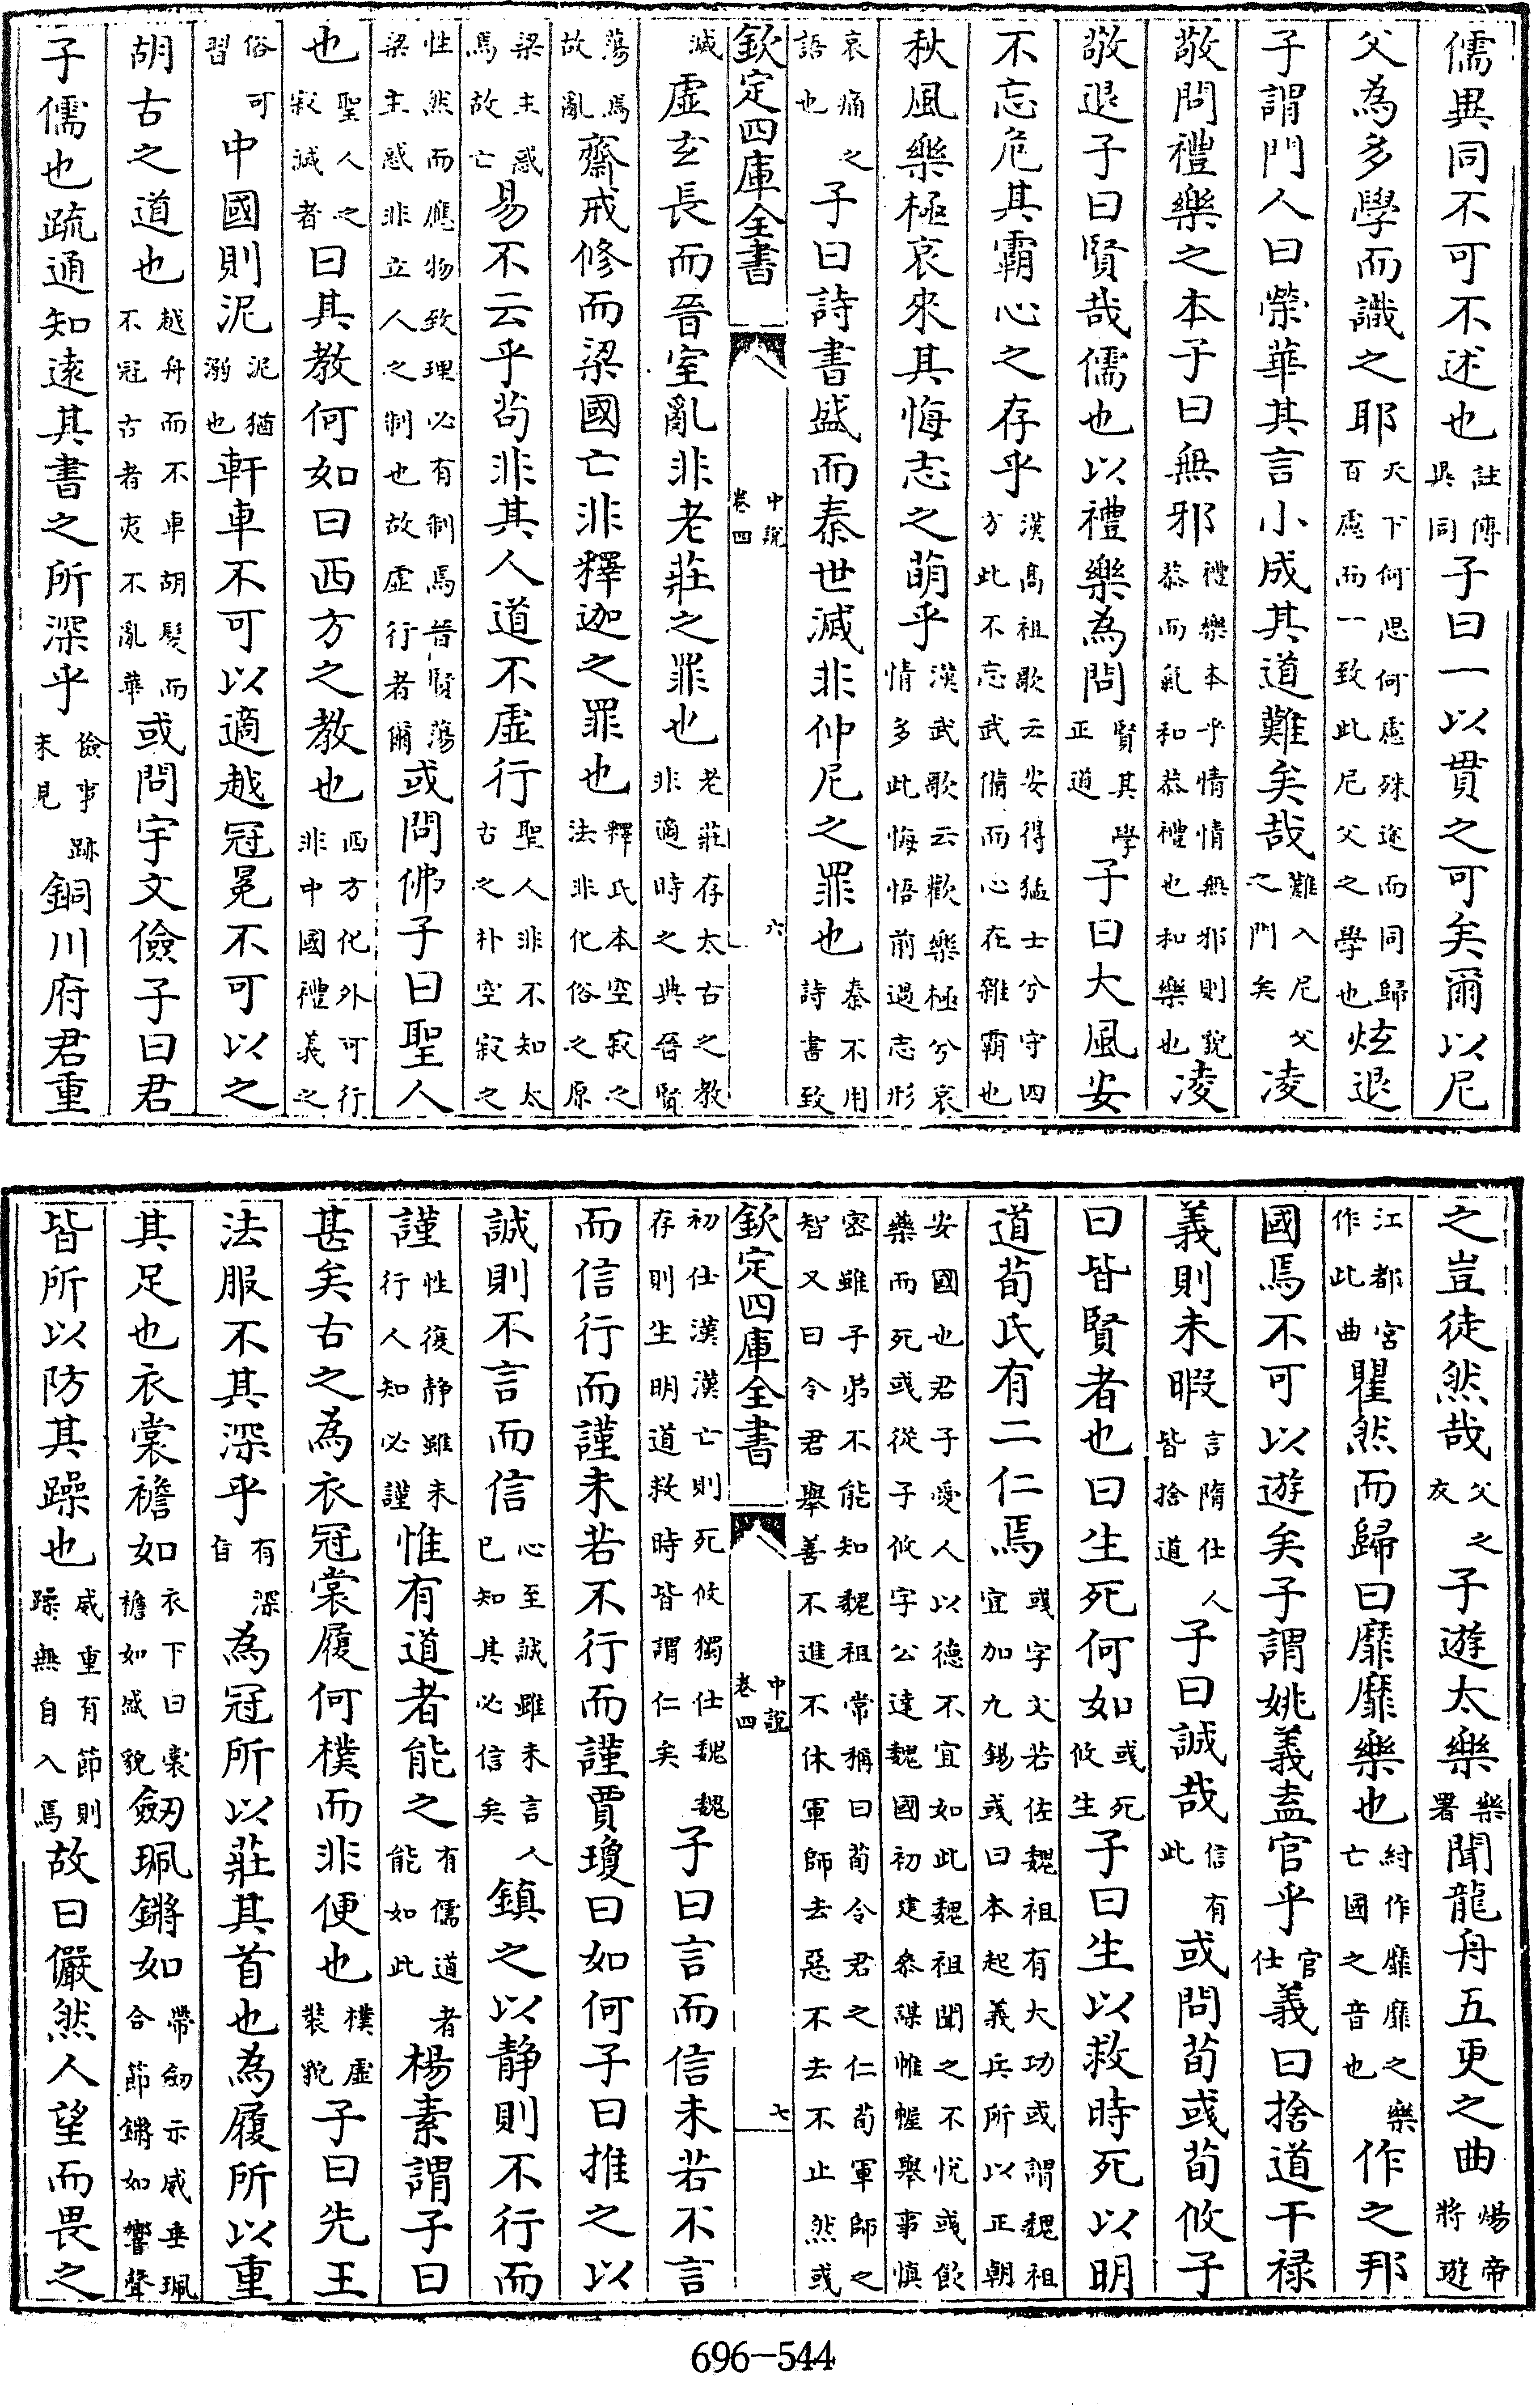 儒異同不可不述也註傳異同子曰一以貫之可矣爾以尼
父為多學而識之耶天下何思何慮殊途而同歸百慮而一致此尼父之學也炫退
子謂門人曰榮華其言小成其道難矣哉難入尼父之門矣凌
敬問禮樂之本子曰無邪禮樂本乎情情無邪則貌恭而氣和恭禮也和樂也凌
敬退子曰賢哉儒也以禮樂為問賢其學正道子曰大風安
不忘危其霸心之存乎漢高祖歌云安得猛士兮守四方此不忘武備而心在雜霸也
秋風樂極哀來其悔志之萌乎漢武歌云歡樂極兮哀情多此悔悟前過志形
哀痛之語也子曰詩書盛而秦世滅非仲尼之罪也秦不用詩書致
欽定四庫全書 中說卷四 六
滅虛玄長而晉室亂非老莊之罪也老莊存太古之教非適時之典晉賢
蕩焉故亂齋戒修而梁國亡非釋迦之罪也釋氏本空寂之法非化俗之原
梁主惑焉故亡易不云乎苟非其人道不虛行聖人非不知太古之朴空寂之
性然而應物致理必有制焉晉賢蕩梁主惑非立人之制也故虛行者爾或問佛子曰聖人
也聖人之寂滅者曰其教何如曰西方之教也西方化外可行非中國禮義之
俗可習中國則泥泥猶溺也軒車不可以適越冠冕不可以之
胡古之道也越舟而不車胡髮而不冠古者夷不亂華或問宇文儉子曰君
子儒也疏通知遠其書之所深乎儉事跡未見銅川府君重
之豈徒然哉父之友子遊太樂樂署聞龍舟五更之曲煬帝將遊
江都宮作此曲瞿然而歸曰靡靡樂也紂作靡靡之樂亡國之音也作之邦
國焉不可以遊矣子謂姚義盍官乎官仕義曰捨道干祿
義則未暇言隋仕人皆捨道子曰誠哉信有此或問荀彧荀攸子
曰皆賢者也曰生死何如或死攸生子曰生以救時死以明
道荀氏有二仁焉彧字文若佐魏祖有大功或謂魏祖宜加九錫彧曰本起義兵所以正朝
安國也君子愛人以德不宜如此魏祖聞之不悅彧飲藥而死或從子攸字公達魏國初建叅謀帷幄舉事慎
密雖子弟不能知魏祖常稱曰荀令君之仁荀軍師之智又曰令君舉善不進不休軍師去惡不去不止然彧
欽定四庫全書 中說卷四 七
初仕漢漢亡則死攸獨仕魏魏存則生明道救時皆謂仁矣子曰言而信未若不言
而信行而謹未若不行而謹賈瓊曰如何子曰推之以
誠則不言而信心至誠雖未言人已知其必信矣鎮之以靜則不行而
謹性復靜雖未行人知必謹惟有道者能之有儒道者能如此楊素謂子曰
甚矣古之為衣冠裳履何樸而非便也樸虛裝貌子曰先王
法服不其深乎有深旨為冠所以莊其首也為履所以重
其足也衣裳襜如衣下曰裳襜如盛貌劒珮鏘如帶劒示威垂珮合節鏘如響聲
皆所以防其躁也威重有節則躁無自入焉故曰儼然人望而畏之
696-544